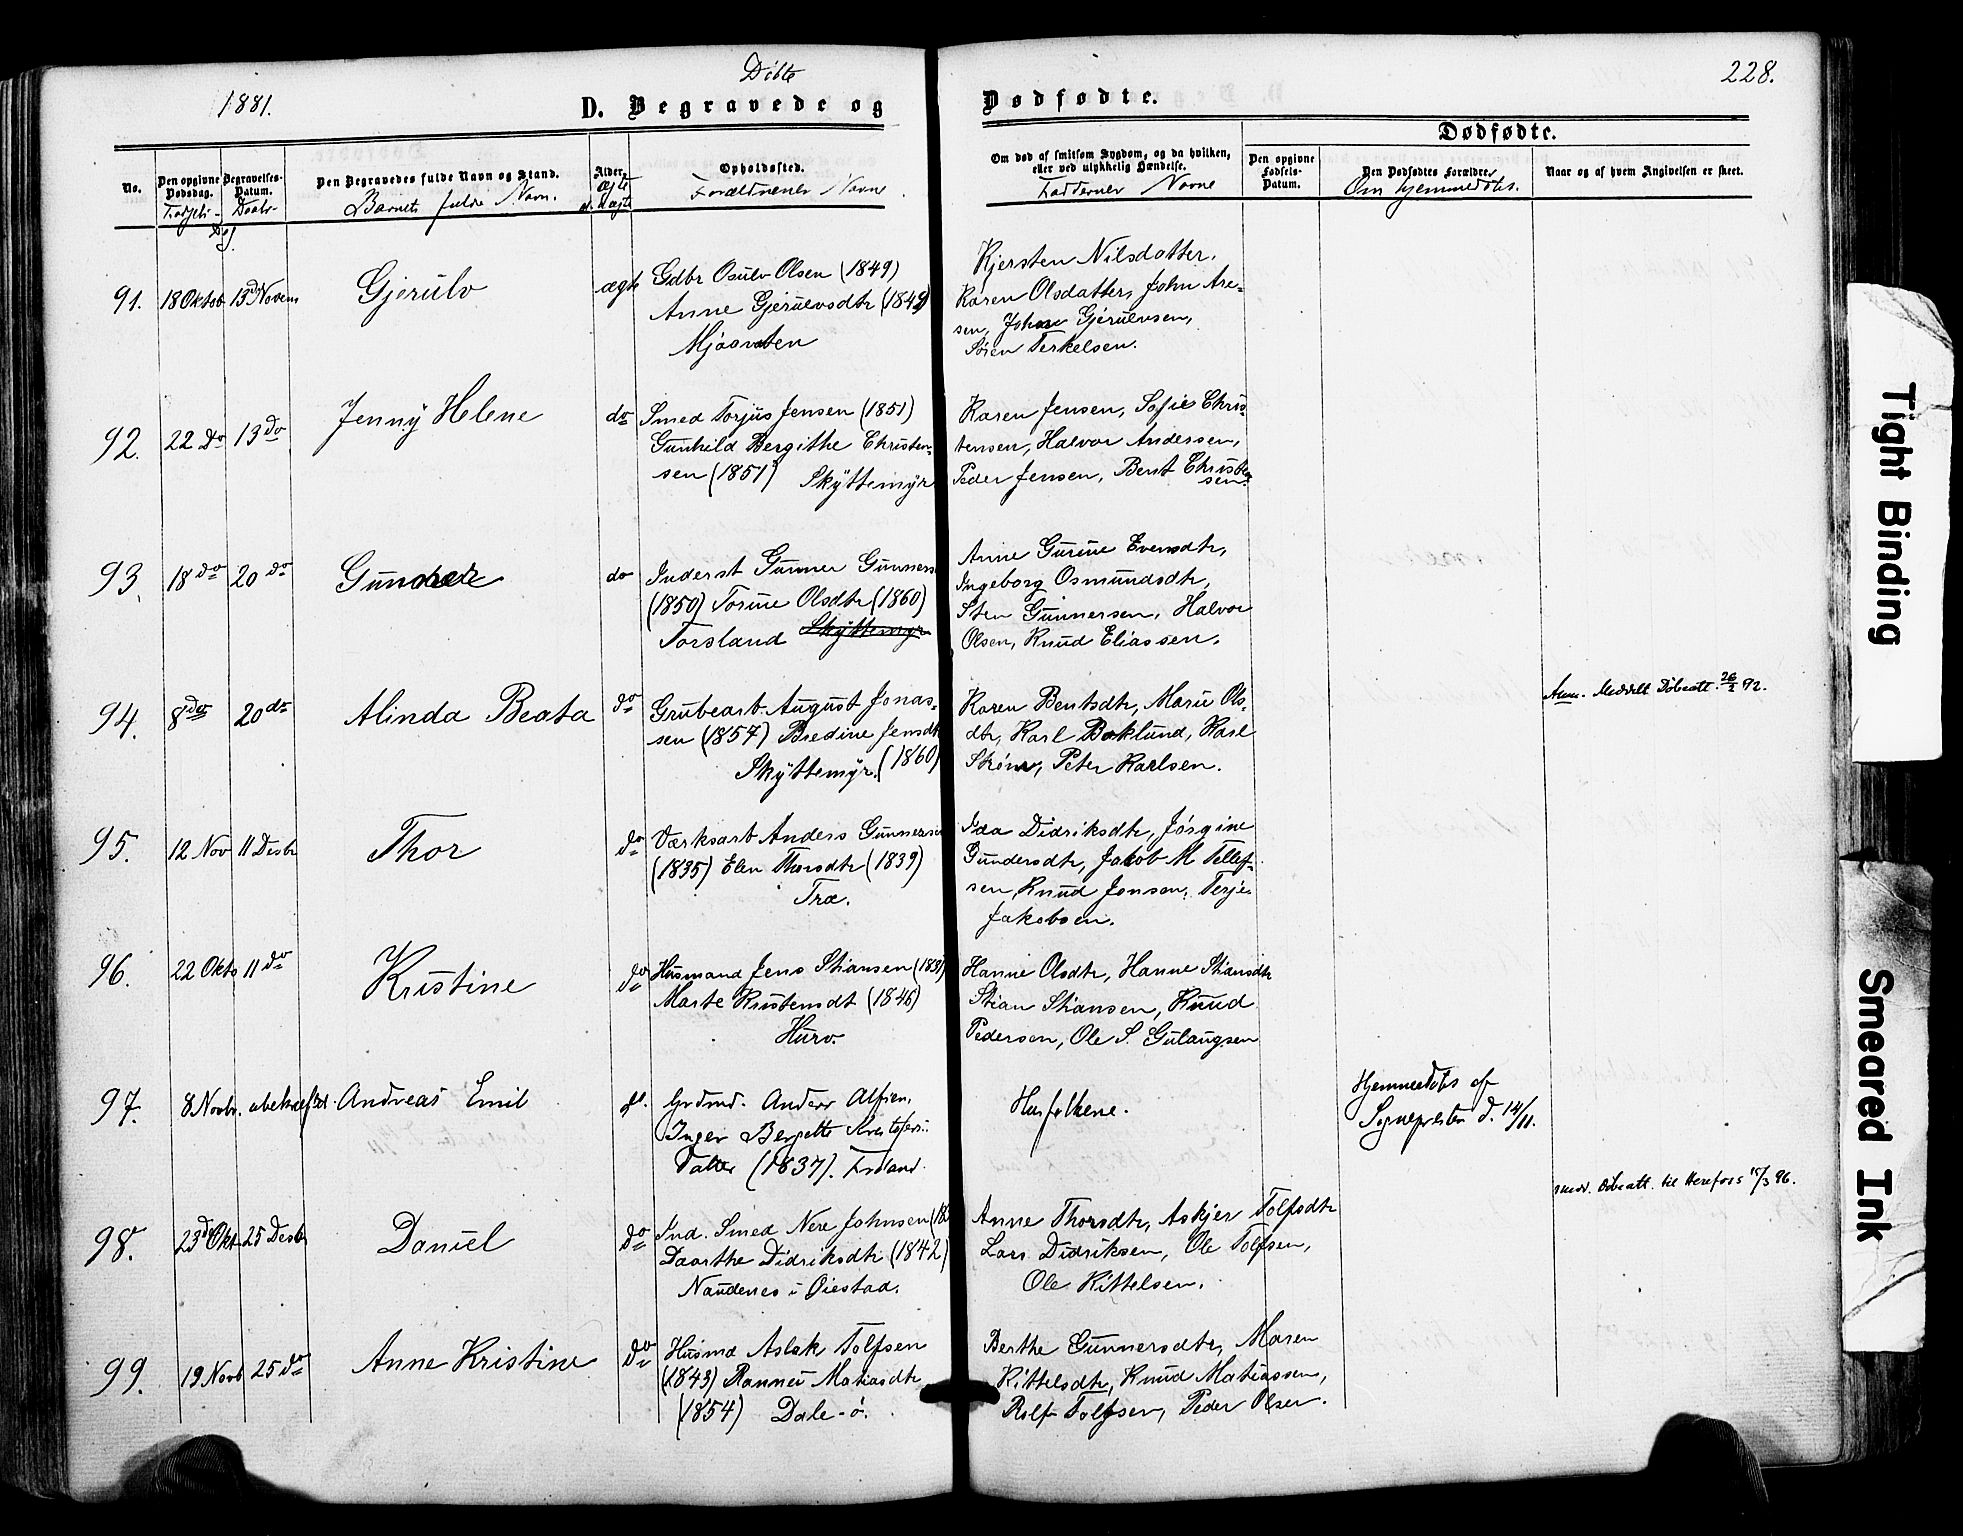 1881.
Döbte
D. Begravede og
Dødfødte.
228.
No.
Den opgivne Dødsdag.
Fødsels-
Begravelses-Datum.
Daabs-
Dag.
Den Begravedes fulde Navn og Stand.
Barnets fulde Navn.
Alder.
ægte
el. uægte
Opholdssted.
Forældrenes Navne
Om død af smitsom Sygdom, og da hvilken,
eller ved ulykkelig Hændelse.
Faddernes Navne
Dødfødte.
Den opgivne Fødsels-Datum.
Den Dødfødtes Forældre.
Om hjemmedøbt.
Naar og af hvem Angivelsen er skeet.
91. 18 Oktob 13de Novem Gjerulv ægte
Gdbr Osulv Olsen (1849)
Anne Gjerulvsdtr (1849)
Mjaavaten
Kjersten Nilsdatter,
Karen Olsdatter, John Are-
sen, Johan Gjerulvsen,
Søren Terkelsen.
92. 22 do 13 do Jenny Helene do
Smed Torjus Jensen (1851)
Gunhild Bergithe Christen-
sen (1851) Skyttemyr
Karen Jensen, Sofie Chris-
tensen, Halvor Andersen,
Peder Jensen, Bent Christen
sen.
93. 18 do 20 do do
Inderst Gunner Gunners
(1850) Torine Olsdtr (1860)
Torsland Skyttemyr
Anne Gurine Evensdtr,
Ingeborg Osmundsdtr,
Sten Gunnersen, Halvor
Olsen, Knud Eliassen.
94. 8 do 20 do Alinda Beata do
Grubearb. August Jonas-
sen (1857) Bredine Jensdtr
Skyttemyr. (1860)
Karen Bentsdtr, Marie Ols-
dtr, Karl Boklund, Karl
Strøm, Peter Karlsen.
Anm. Meddelt Döbeatt. 26/2 92.
95. 12 Nov 11 Desbr Thor do
Værksarb Anders Gunnersen
(1835) Elen Thorsdtr (1839)
Træ.
Ida Didriksdtr, Jörgine
Gundersdtr, Jakob M Tellef-
sen, Knud Jonsen, Terje
Jakobsen.
96. 22 Okto 11 do Kristine do
Husmand Jens Stiansen (183
Marte Kristensdt (1846)
Hurv.
Hanne Olsdtr, Hanne Stiansdtr
Stian Stiansen, Knud
Pedersen, Ole S. Gulaugsen
97. 8 Novbr. ubekræftet. Andreas Emil
Grdmd. Anders Alfsen,
Inger Bergette Kristofers-
datter (1837). Froland.
Husfolkene.
Hjemmedøbt af
Sognepresten d. 14/11.
98. 23de Okt 25 Desbr Daniel do
Ind. Smed Nere Johnsen (18
Daarthe Didriksdtr (1842)
Naudenes i Øiestad.
Anne Thorsdtr, Askjer Tolfsdtr
Lars Didriksen, Ole Tolfsen,
Ole Kittelsen.
Medd. Döbeatt. til Herefoss 15/3 96.
99. 19 Novb 25 do Anne Kristine do
Husmd Aslak Tolfsen
(1843) Rannei Matiasdtr
(1854) Dale-ø.
Berthe Gunnersdtr, Maren
Kittelsdtr, Knud Matiassen,
Rolf Tolfsen, Peder Olsen.
Tight Binding
Smeared Ink